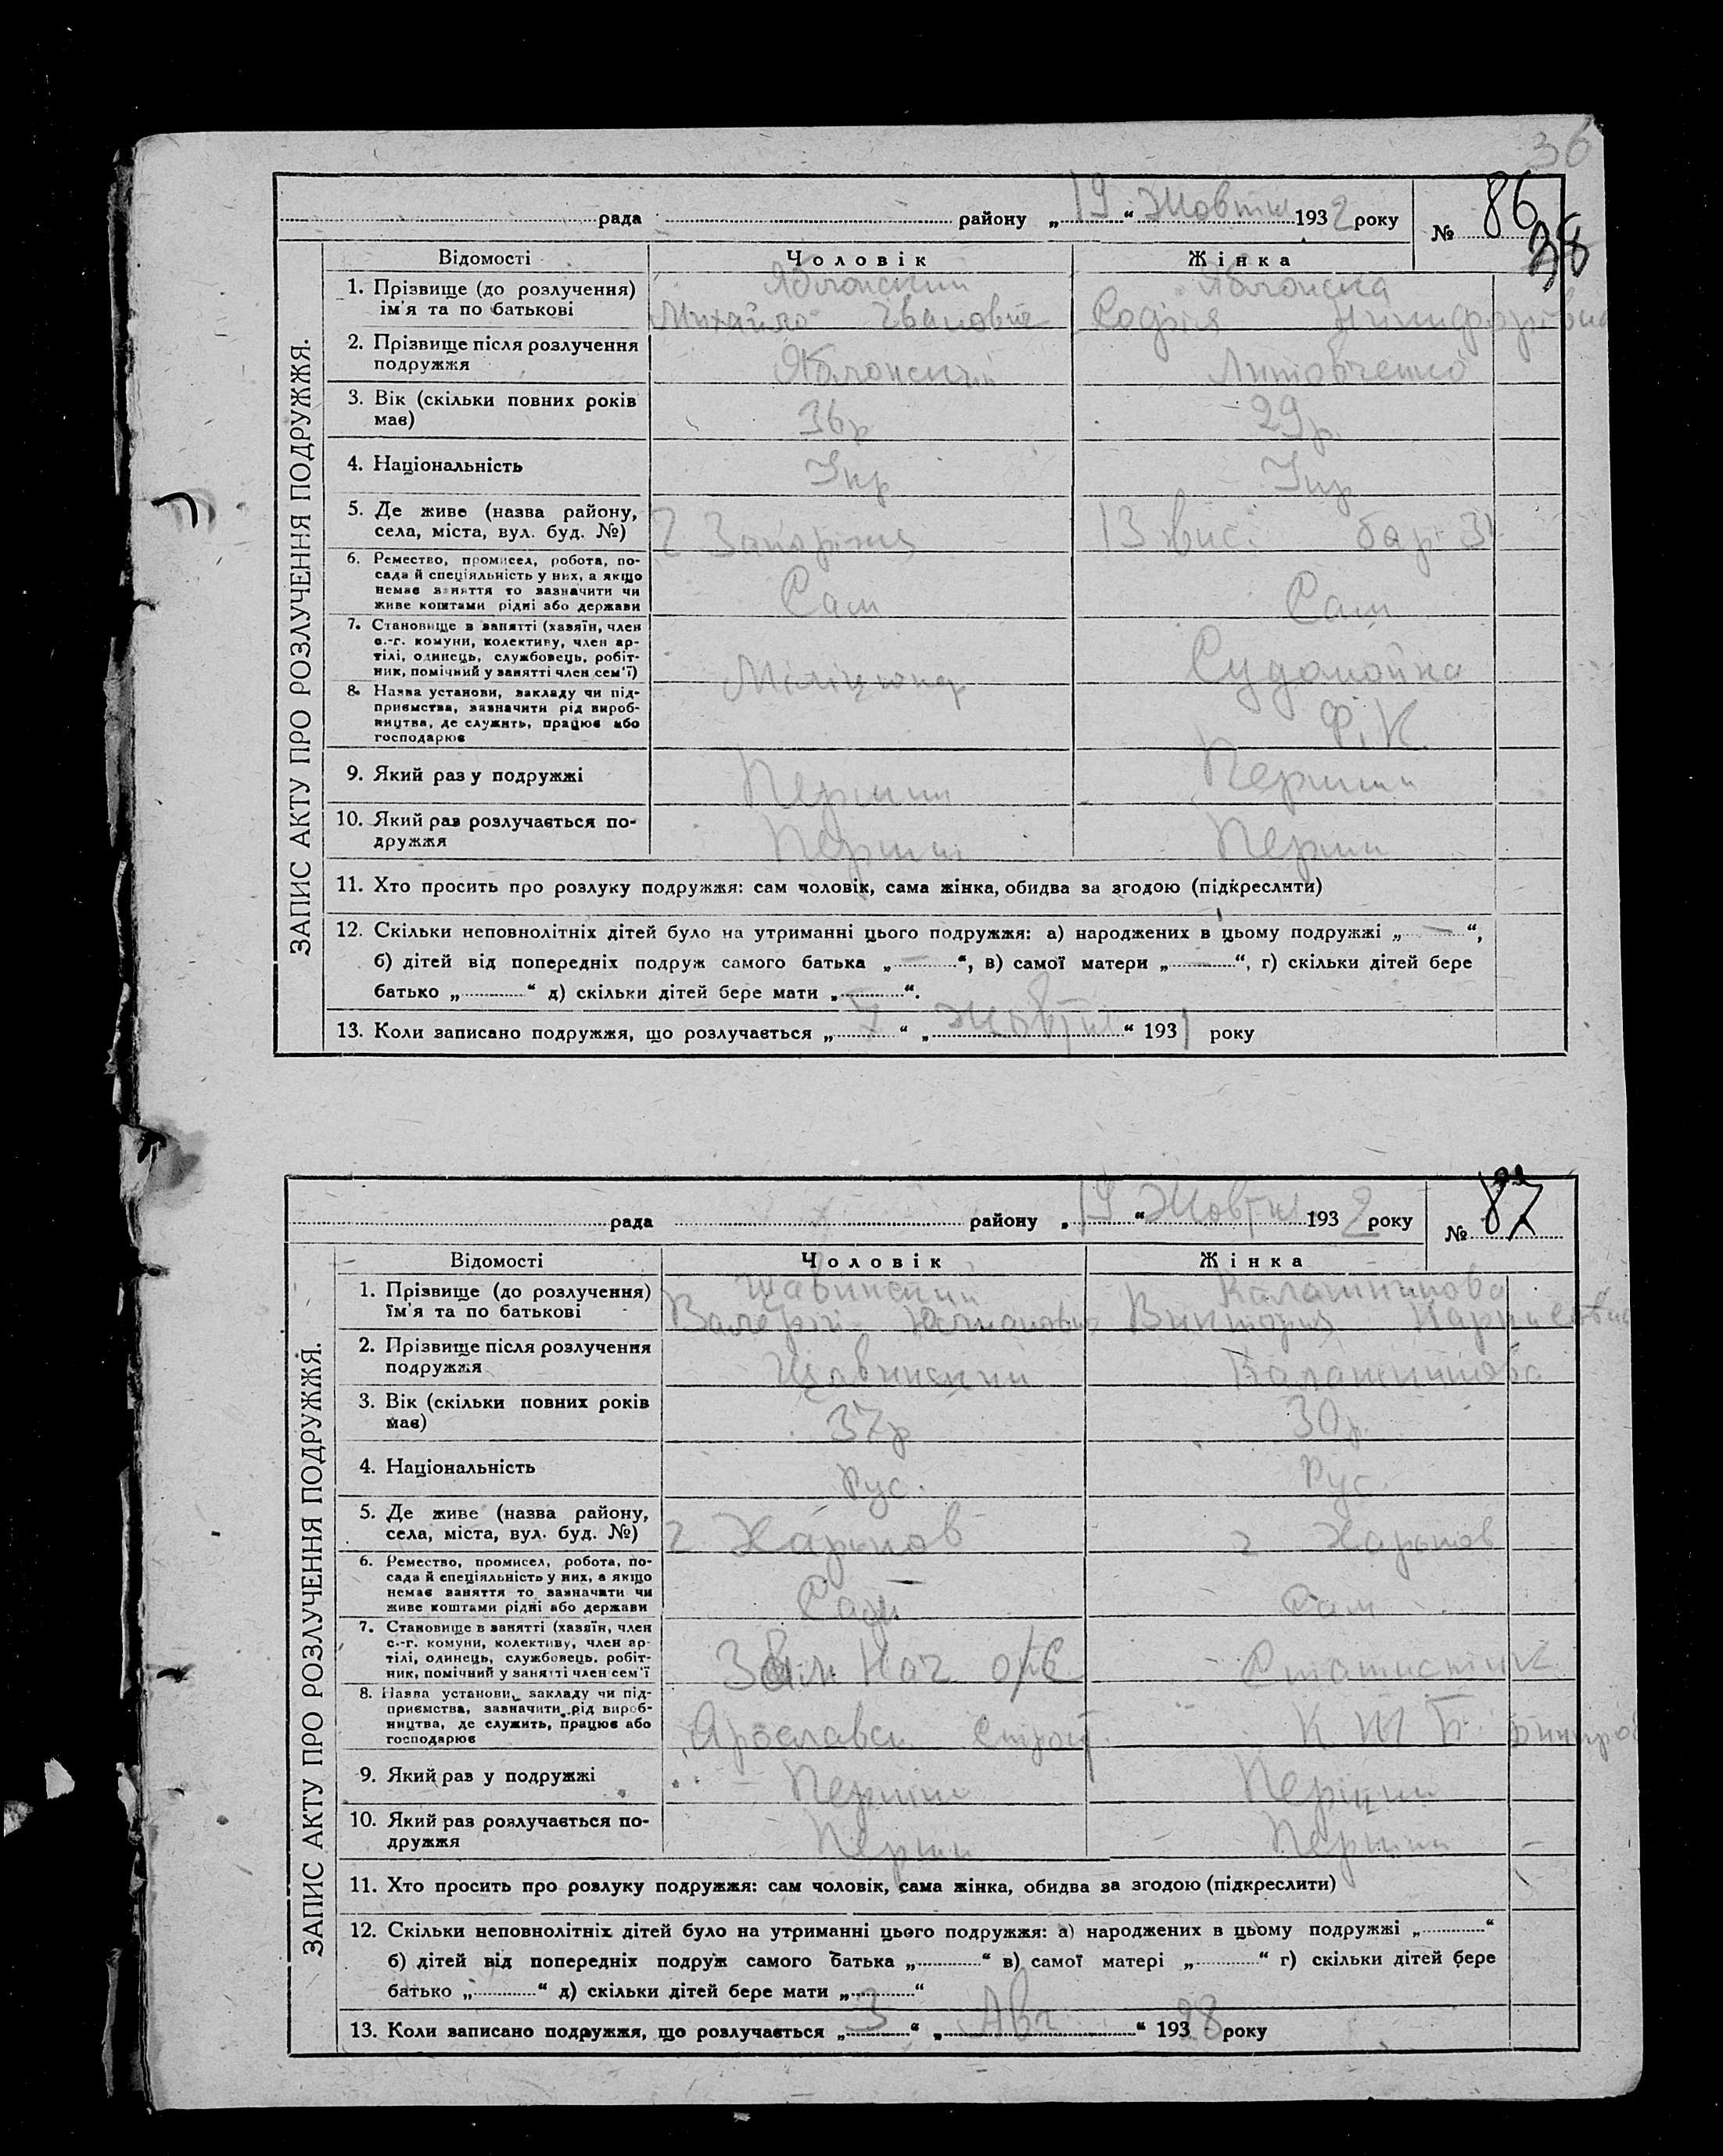 36
рада району „ 19 “ Жовтня 1932 року № 86
38
ЗАПИС АКТУ ПРО РОЗЛУЧЕННЯ ПОДРУЖЖЯ.
Відомості Чоловік Жінка
1. Прізвище (до розлучення) Яблонский Яблонска
ім'я та по батькові Михайло Іванович Софія Никифорівна
2. Прізвище після розлучення
подружжя Яблонский Литовченко
3. Вік (скільки повних років
має) 36р 29р.
4. Національність Укр Укр
5. Де живе (назва району,
села, міста, вул. буд. №) г Запоріжя 13 вис. бар 31
6. Ремество, промисел, робота, по-
сада й спеціяльність у них, а якщо
немає заняття то зазначити чи
живе коштами рідні або держави Сам Сам
7. Становище в занятті (хазяїн, член
с.-г. комуни, колективу, член ар-
тілі, одинець, службовець, робіт-
ник, помічний у занятті член сем'ї) Міліціонер Судомойка
8. Назва установи, закладу чи під-
приємства, зазначити рід вироб-
ництва, де служить, працює або
господарює Ф.К.
9. Який раз у подружжі Перший Перший
10. Який раз розлучається по-
дружжя Перший Перший
11. Хто просить про розлуку подружжя: сам чоловік, сама жінка, обидва за згодою (підкреслити)
12. Скільки неповнолітніх дітей було на утриманні цього подружжя: а) народжених в цьому подружжі „ — “,
б) дітей від попередніх подруж самого батька „ — “, в) самої матери „ — “, г) скільки дітей бере
батько „ “ д) скільки дітей бере мати „ “.
13. Коли записано подружжя, що розлучається „ “ „ Жовтня “ 1931 року
рада району „ 19 “ Жовтня 1932 року № 87
ЗАПИС АКТУ ПРО РОЗЛУЧЕННЯ ПОДРУЖЖЯ.
Відомості Чоловік Жінка
1. Прізвище (до розлучення) Щавинский Калашникова
їм'я та по батькові Валерій Виктория
2. Прізвище після розлучення
подружжя Щавинский Калашникова
3. Вік (скільки повних років
має) 37р 30р.
4. Національність Рус. Рус.
5. Де живе (назва району,
села, міста, вул. буд. №) г Харьков г Харьков
6. Ремество, промисел, робота, по-
сада й спеціяльність у них, а якщо
немає заняття то зазначати чи
живе коштами рідні або держави Сам Сам
7. Становище в занятті (хазяїн, член
с.-г. комуни, колективу, член ар-
тілі, одинець, службовець, робіт-
ник, помічний у занятті член сем'ї Зам Нач Статистик
8. Назва установи, закладу чи під-
приємства, зазначити рід вироб-
ництва, де служить, працює або
господарює Ярославск Строй
9. Який раз у подружжі Перший Перший
10. Який раз розлучається по-
дружжя Перший Перший
11. Хто просить про розлуку подружжя: сам чоловік, сама жінка, обидва за згодою (підкреслити)
12. Скільки неповнолітніх дітей було на утриманні цього подружжя: а) народжених в цьому подружжі „ “
б) дітей від попередніх подруж самого батька „ “ в) самої матері „ “ г) скільки дітей бере
батько „ “ д) скільки дітей бере мати „ “
13. Коли записано подружжя, що розлучається „ 3 “ „ Авг “ 193 28 року